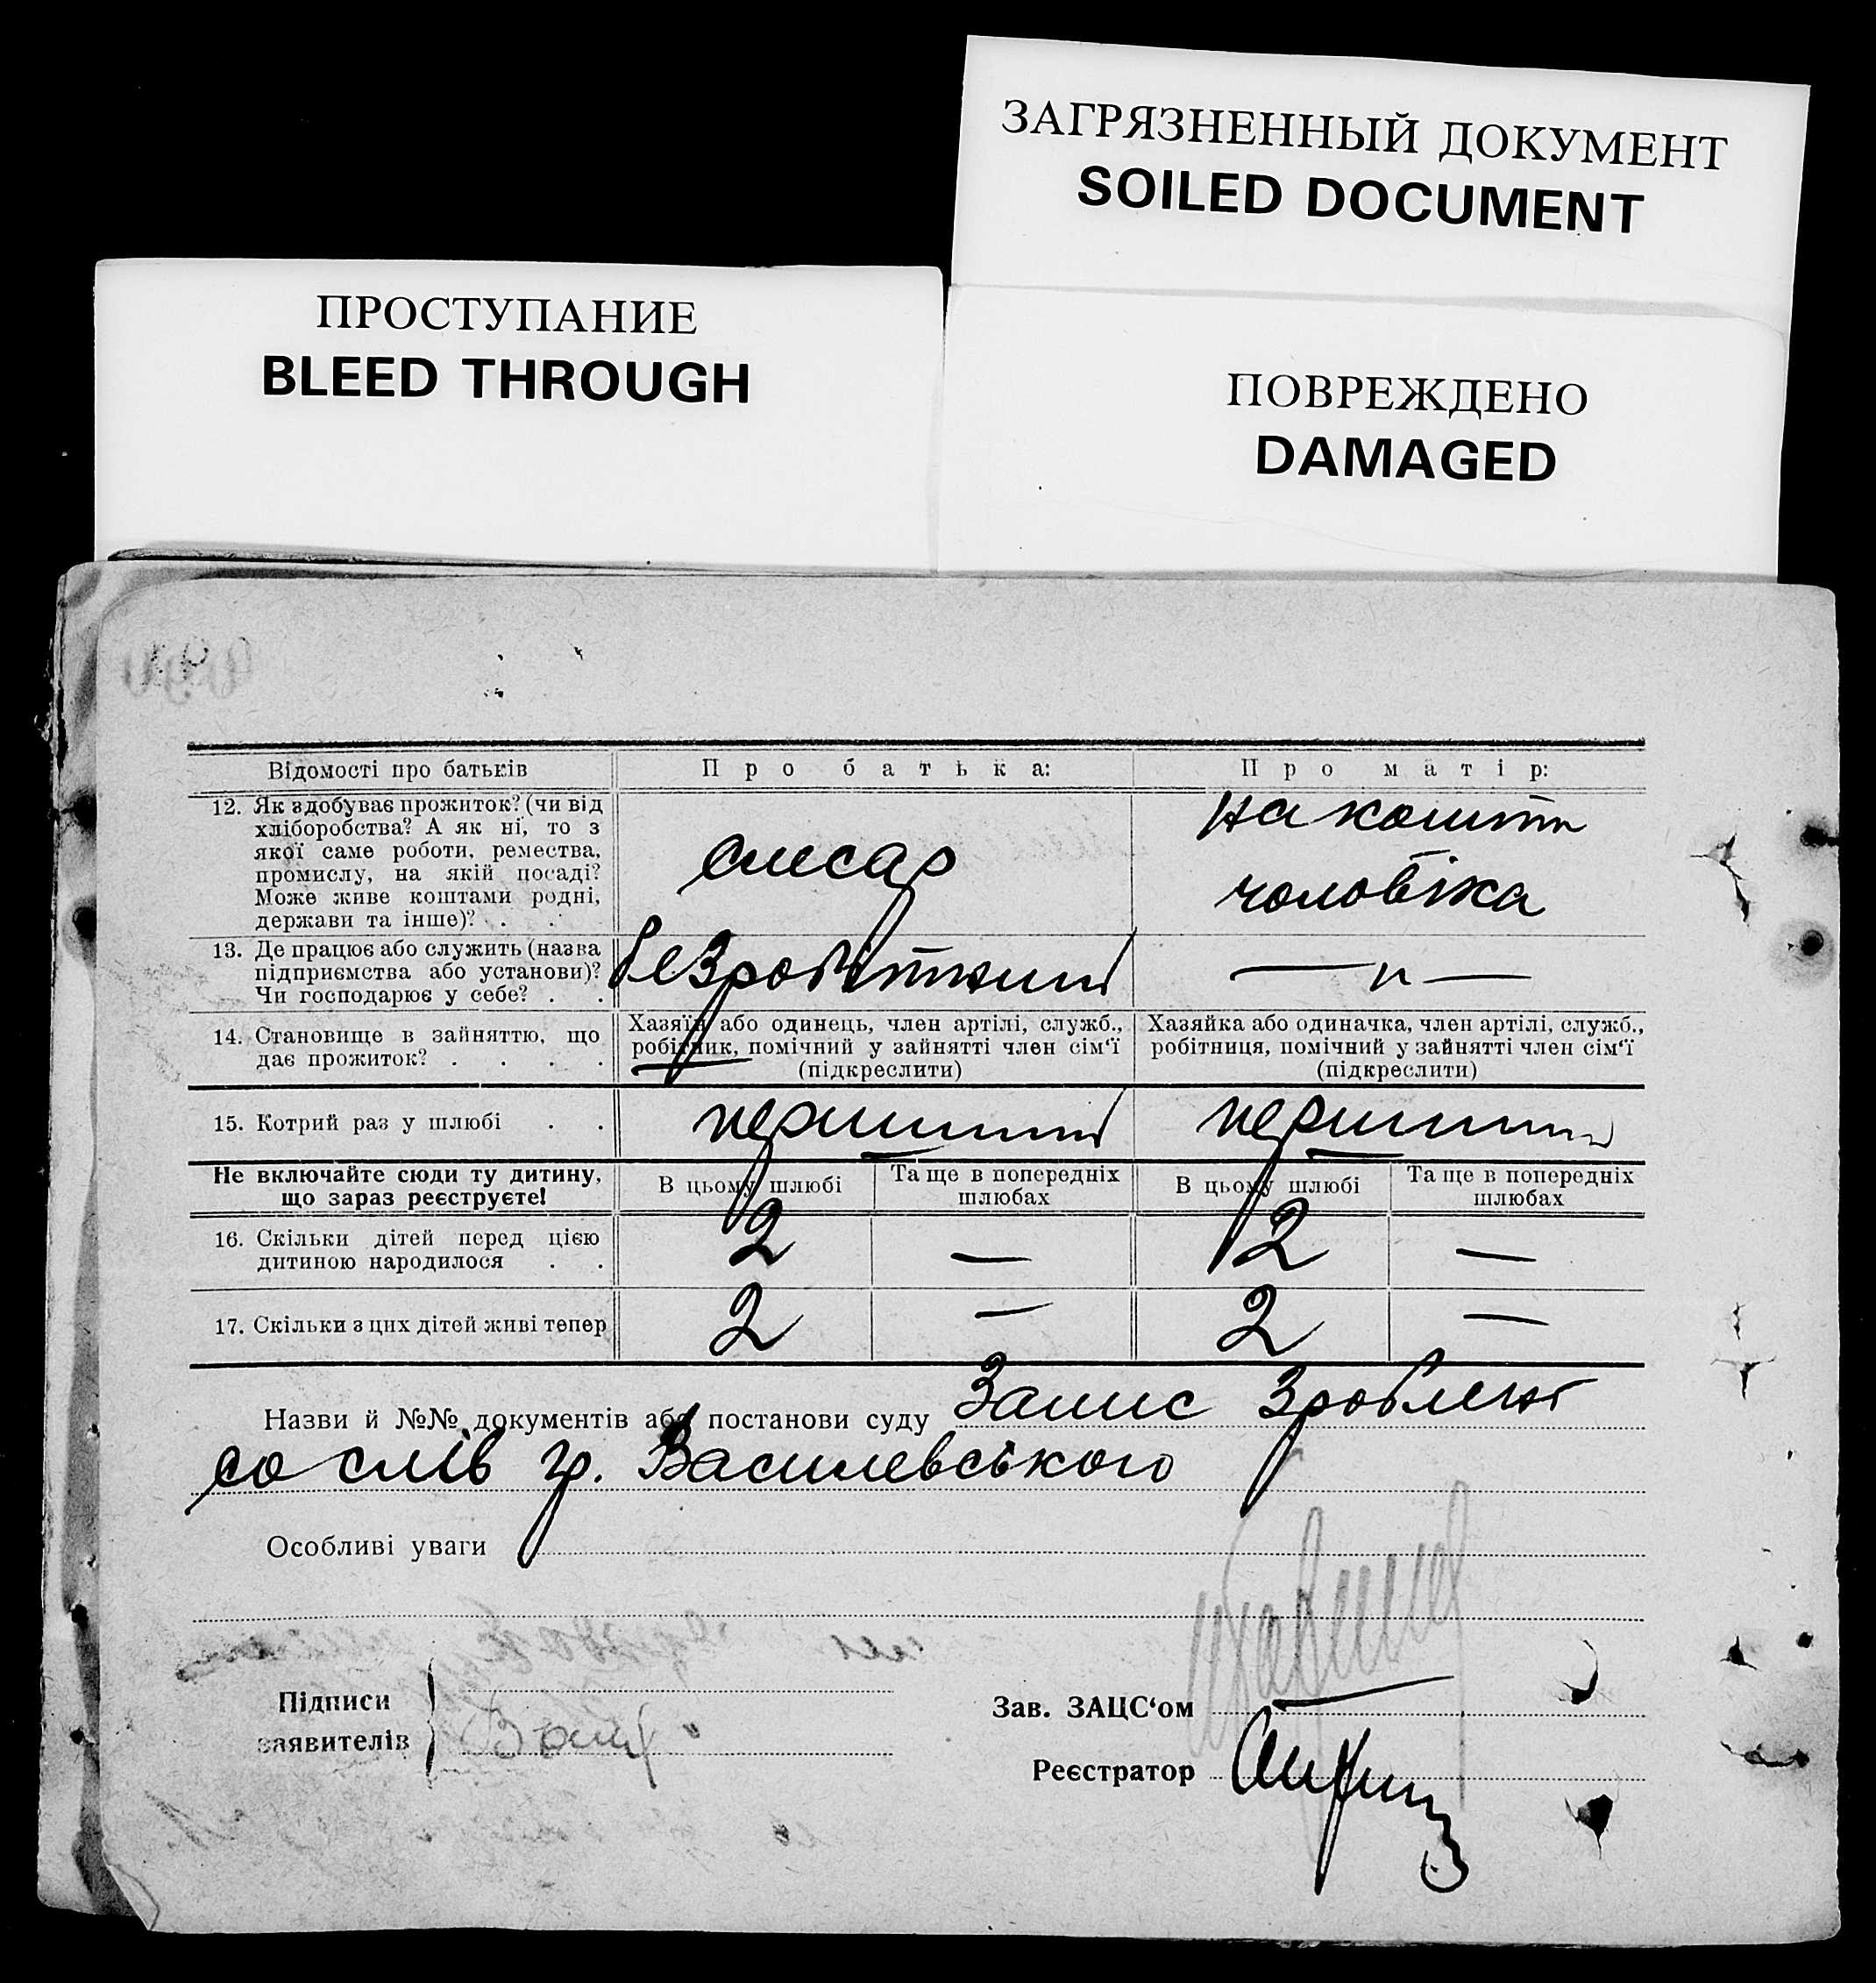 ЗАГРЯЗНЕННЫЙ ДОКУМЕНТ
SOILED DOCUMENT
ПРОСТУПАНИЕ
BLEED THROUGH
ПОВРЕЖДЕНО
DAMAGED
Відомості про батьків
Про батька:
Про матір:
12. Як здобуває прожиток? (чи від
хліборобства? А як ні, то з
якої саме роботи, ремества,
промислу, на якій посаді?
Може живе коштами родні,
держави та інше)? . .
слесар
на кошти
чоловіка
13. Де працює або служить (назва
підприємства або установи)?
Чи господарює у себе? . .
безробітний
— „ —
14. Становище в зайняттю, що
дає прожиток? . . . .
Хазяїн або одинець, член артілі, служб.,
робітник, помічний у зайнятті член сім‘ї
(підкреслити)
Хазяйка або одиначка, член артілі, служб.,
робітниця, помічний у зайнятті член сім‘ї
(підкреслити)
15. Котрий раз у шлюбі . .
перший
перший
Не включайте сюди ту дитину,
що зараз реєструєте!
В цьому шлюбі
Та ще в попередніх
шлюбах
В цьому шлюбі
Та ще в попередніх
шлюбах
16. Скільки дітей перед цією
дитиною народилося . .
2 — 2 —
17. Скільки з цих дітей живі тепер
2 — 2 —
Назви й №№ документів або постанови суду Запис зроблено
со слів гр. Василевського
Особливі уваги
Підписи
заявителів
Зав. ЗАЦС‘ом
Реєстратор